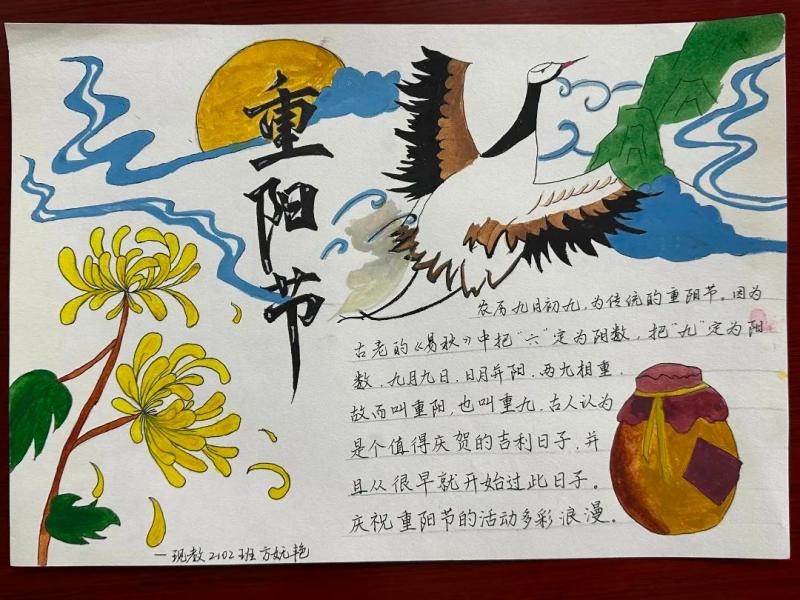 重阳节
农历九月初九，为传统的重阳节。因为
古老的《易秋》中把“六”定为阳数，把“九”定为阳
数，九月九日，日月并阳，两九相重，
故而叫重阳，也叫重九，古人认为
是个值得庆贺的吉利日子，并
且从很早就开始过此日子。
庆祝重阳节的活动多彩浪漫。
—现教2102班 方妧艳